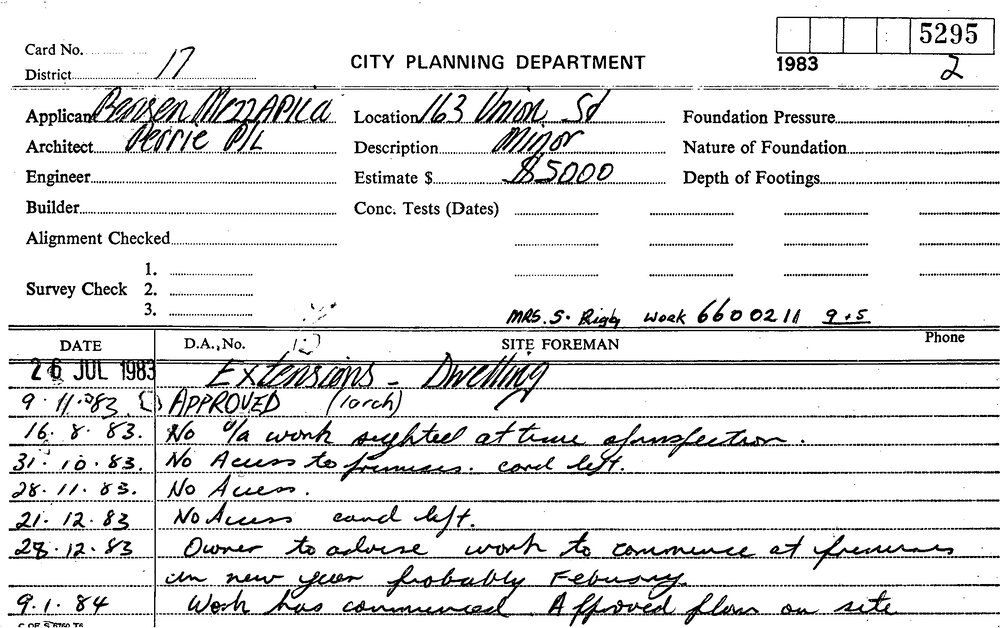 5295
Card No.
District 17
CITY PLANNING DEPARTMENT
1983 2
Applicant Bensen Mezzapica Location 163 Union St Foundation Pressure
Architect Perrie P/L Description Minor Nature of Foundation
Engineer Estimate $ $5000 Depth of Footings
Builder Conc. Tests (Dates)
Alignment Checked
1.
Survey Check 2.
3.
MRS. S. Rigby work 6600211 9+5
DATE D.A., No. SITE FOREMAN Phone
26 JUL 1983 Extensions - Dwelling
9.11.83 APPROVED
16.8.83. No o/a work sighted at time of inspection.
31.10.83. No Acess to premises. card left.
28.11.83. No Acess.
21.12.83 No Acess card left.
28.12.83 Owner to advise work to commence at premises
in new year probably Febuary.
9.1.84 Work has commenced. Approved plans on site